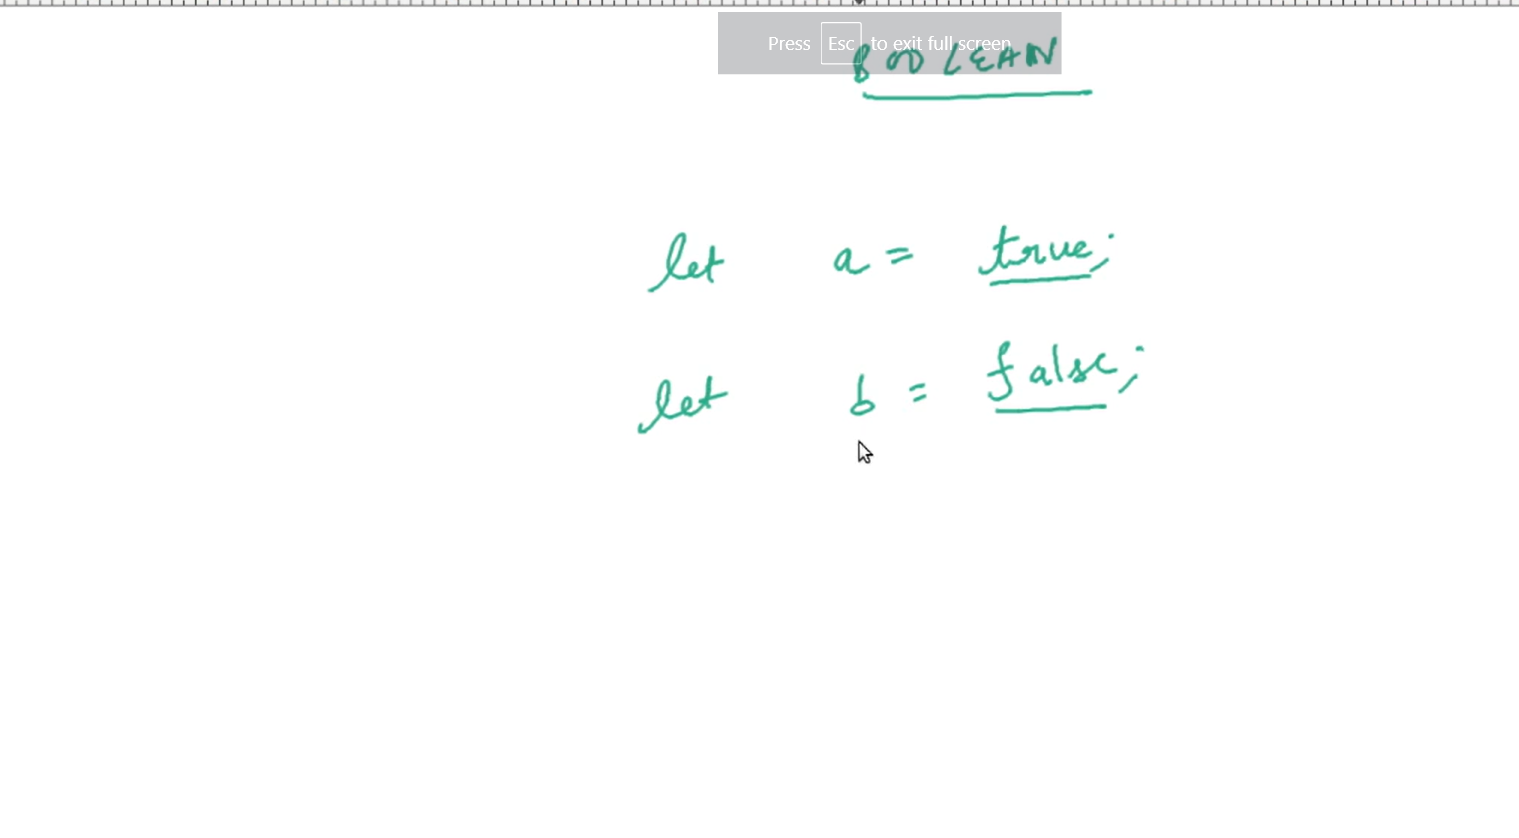 Press Esc to exit full screen
BOOLEAN
let a = true;
let b = false;